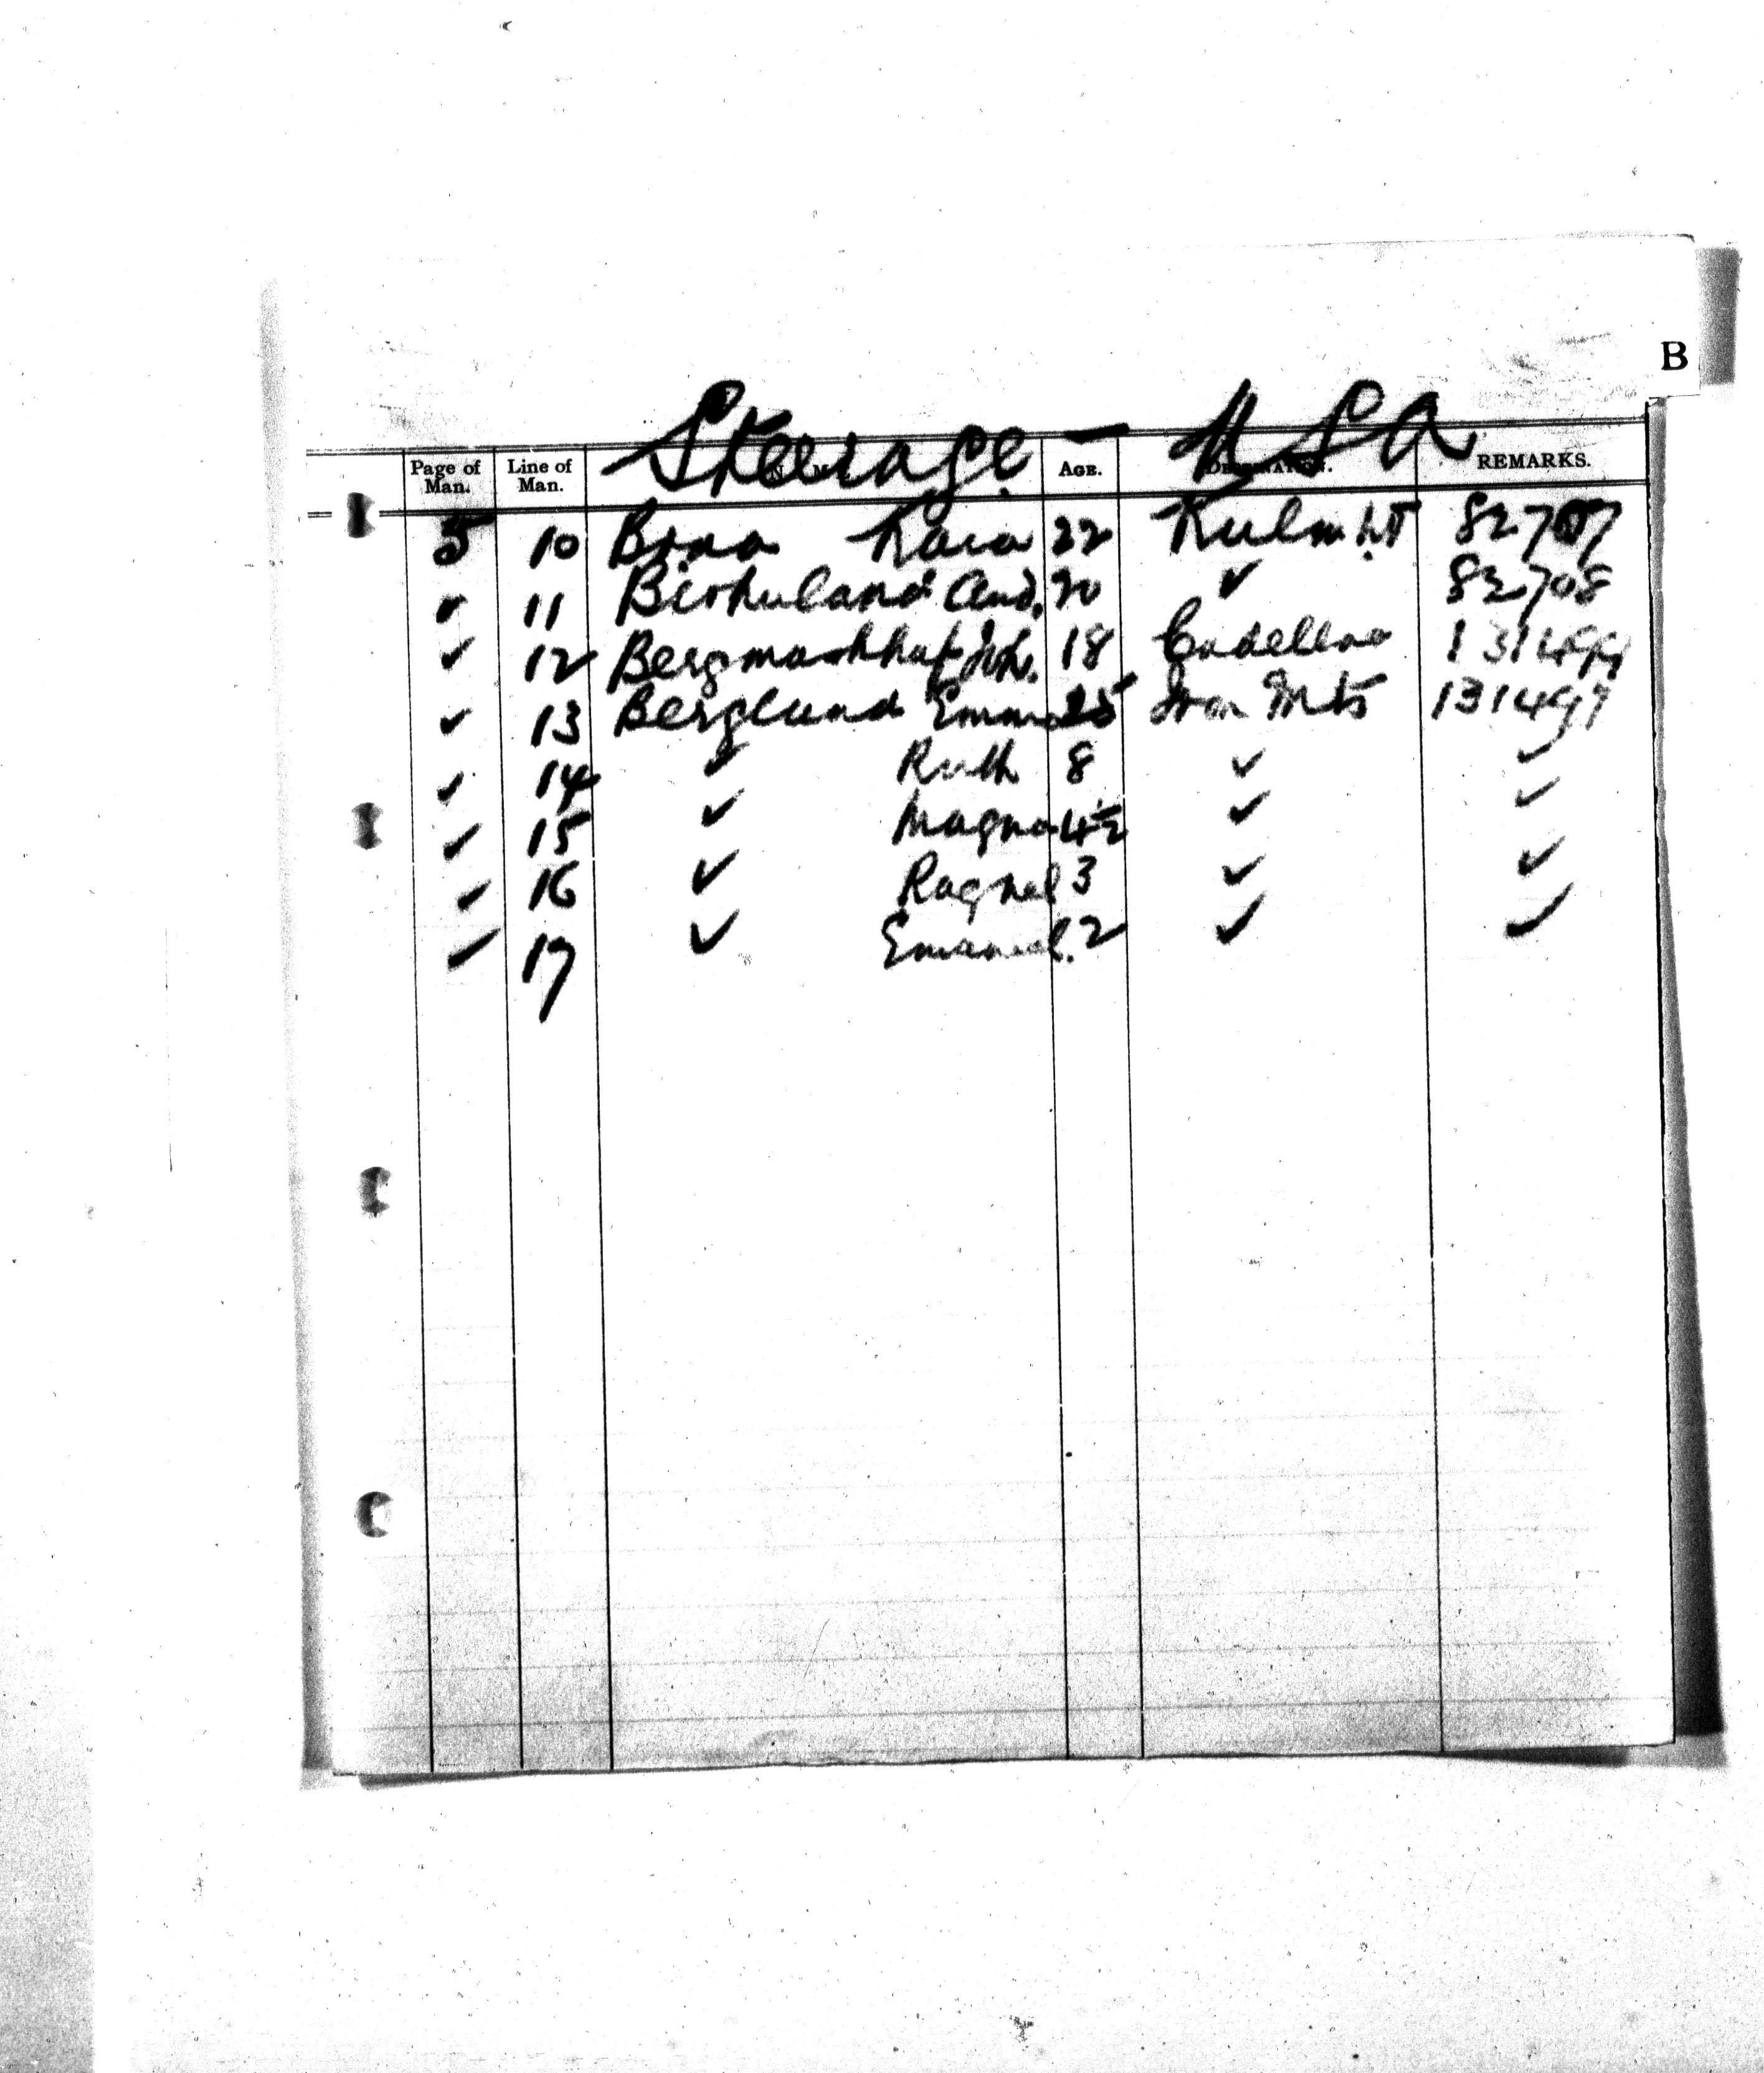 B
Steerage - U S A
Page of Man. Line of Man. AGE. REMARKS.
5 10 Kara 22 Kulm 82707
✓ 11 And. 20 ✓ 82708
✓ 12 Joh. 18
✓ 13 Berglund Emma 25 Iron Mts 131497
✓ 14 ✓ Ruth 8 ✓ ✓
✓ 15 ✓ Magna 4½ ✓ ✓
✓ 16 ✓ Ragnel 3 ✓ ✓
✓ 17 ✓ Emanuel. 2 ✓ ✓